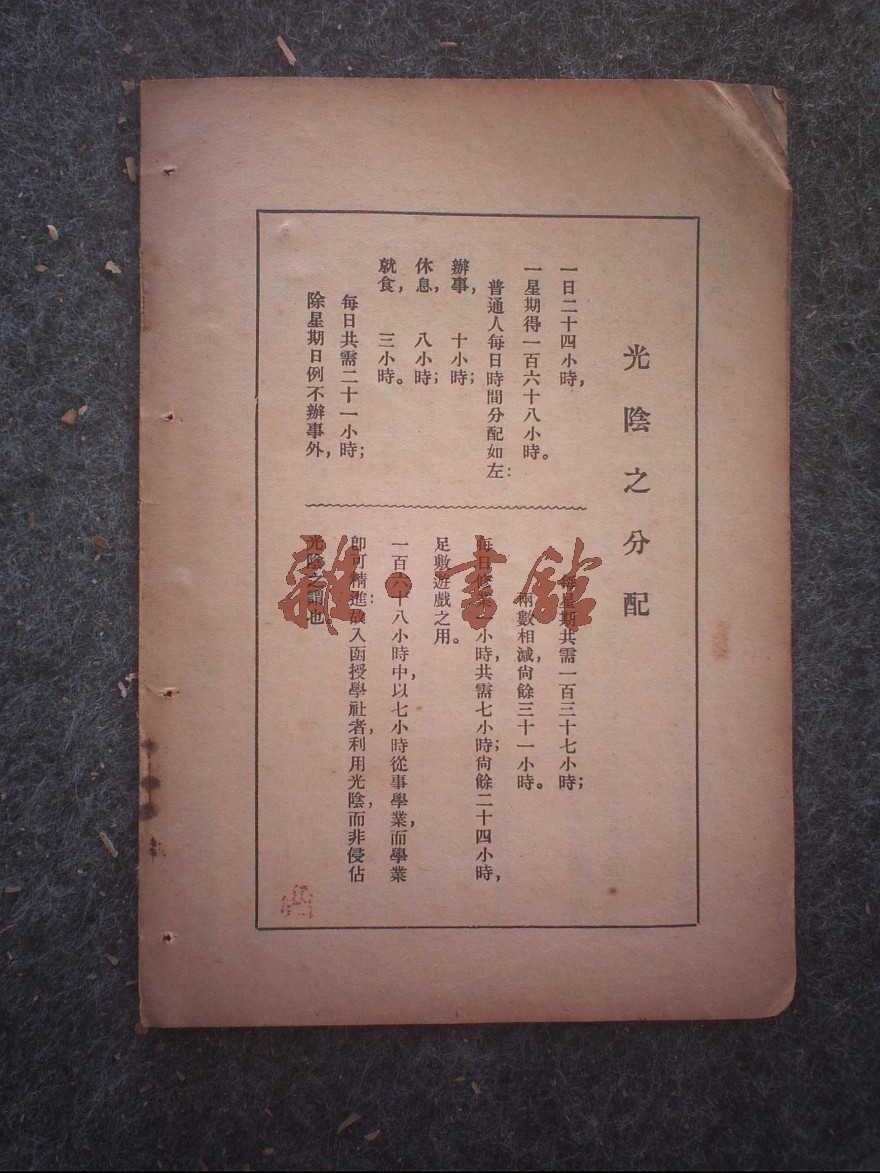 光陰之分配
一日二十四小時，
一星期得一百六十八小時。
普通人每日時間分配如左：
辦事，　十小時；
休息，　八小時；
就食，　三小時。
每日共需二十一小時；
除星期日例不辦事外，
每星期共需一百三十七小時；
兩數相減，尙餘三十一小時。
每日修業一小時，共需七小時；尙餘二十四小時，
足敷遊戲之用。
一百六十八小時中，以七小時從事學業，而學業
卽可精進：故入函授學社者，利用光陰，而非侵佔
光陰之謂也
雜·書館